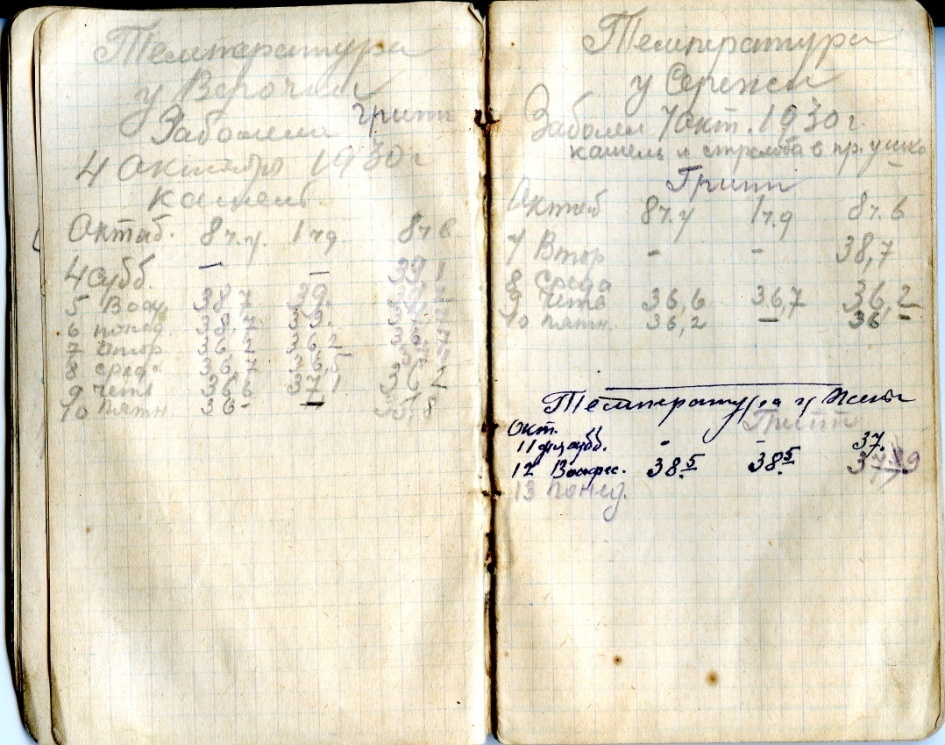 Температура
у Верочки
Заболела Грипп
4 Октября 1930 г
кашель.
Октяб. 8ч.у. 1чд 8ч в
4 субб. — — 39,1
5 Воск 38 7 39.
6 понед 38.7 39.
7 Втор 36 2 36,2
8 сред. 36,7 36,5
9 четв 36 6 37 1 36 2
10 пятн 36- —
Температура
у Сережи
Заболел 7 окт. 1930 г.
кашель и стрельба в пр. ушко
Грипп
Октяб 8ч.у 1ч.д 8ч.в
7 Втор - - 38,7
8 Среда
9 четв 36,6 36,7 36,2
10 пятн. 36,2 — 36 —
Температура у
Грипп
Окт.
11 субб. - - 37.
12 Воскрес. 38.5 38.5
13 понед.